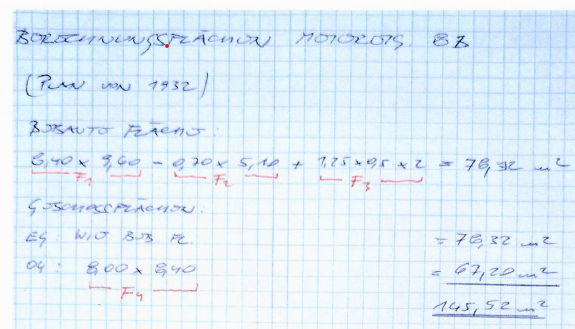 BERECHNUNGSFLÄCHEN 8B
(PLAN VON 1932)
BEBAUTE FLÄCHE:
8,40 x 9,60 - 0,70 x 5,10 + 1,25 x 0,5 x 2 = 78,32 m²
F1 F2 F3
GESCHOSSFLÄCHEN:
EG: WIE BEB. FL. = 78,32 m²
OG: 8,00 x 8,40 = 67,20 m²
F4 145,52 m²